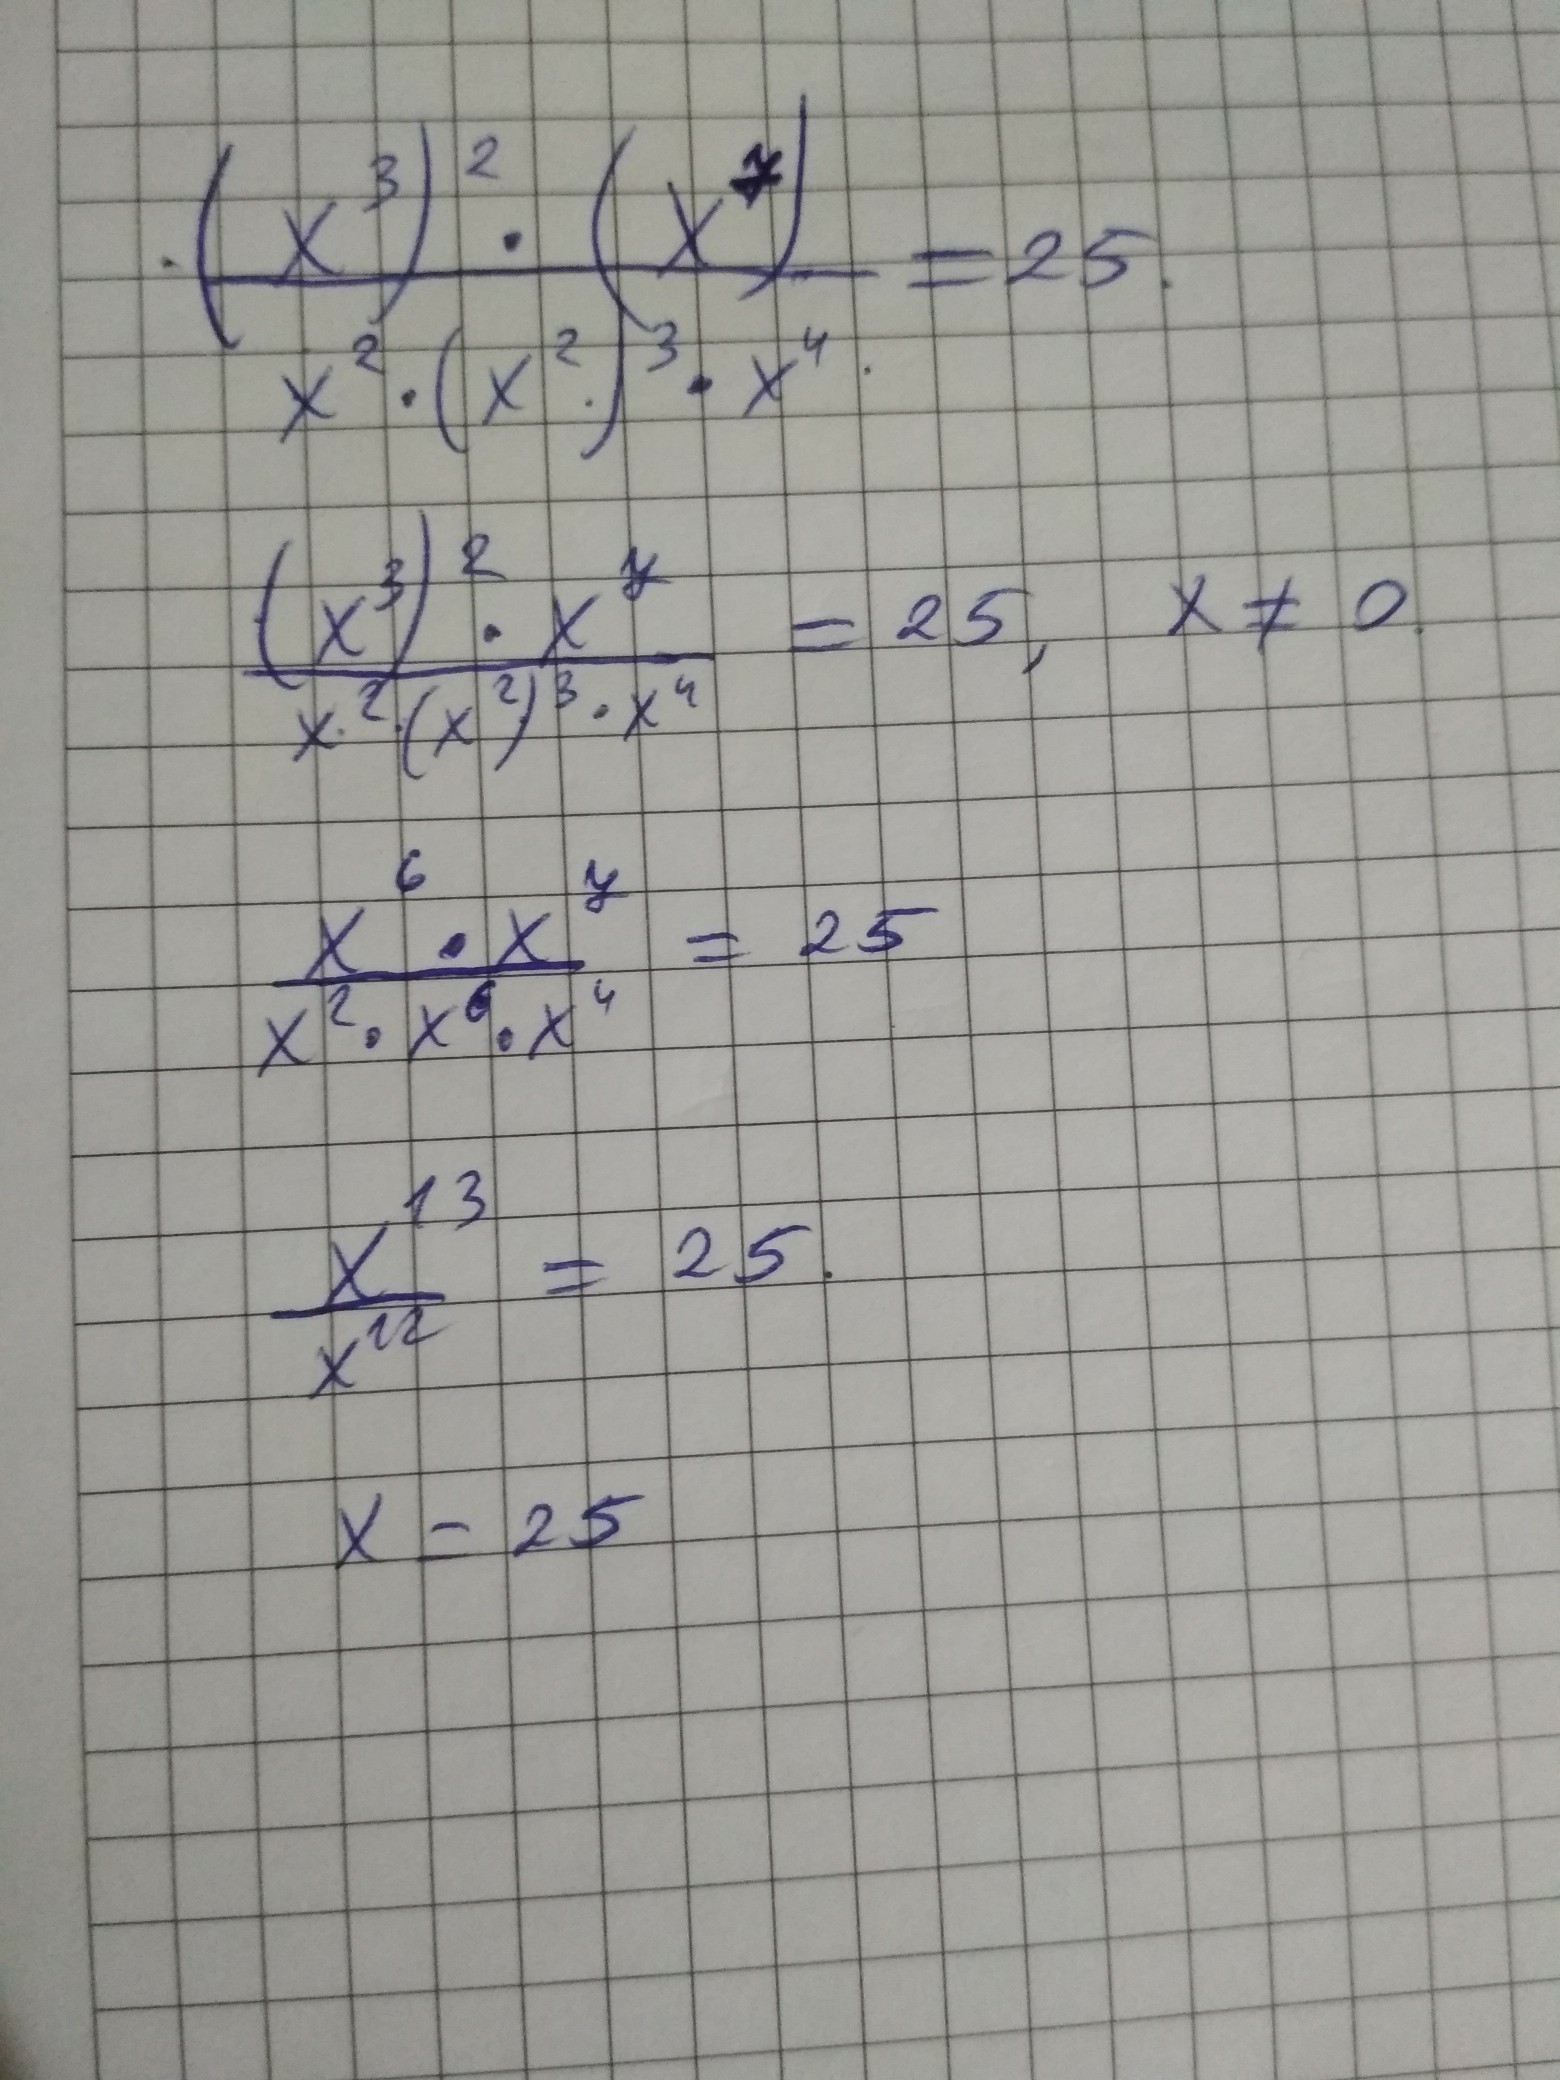 (x³)² · (x⁷) / x² · (x²)³ · x⁴ = 25.
(x³)² · x⁷ / x² · (x²)³ · x⁴ = 25, x ≠ 0.
x⁶ · x⁷ / x² · x⁶ · x⁴ = 25
x¹³ / x¹² = 25.
x = 25